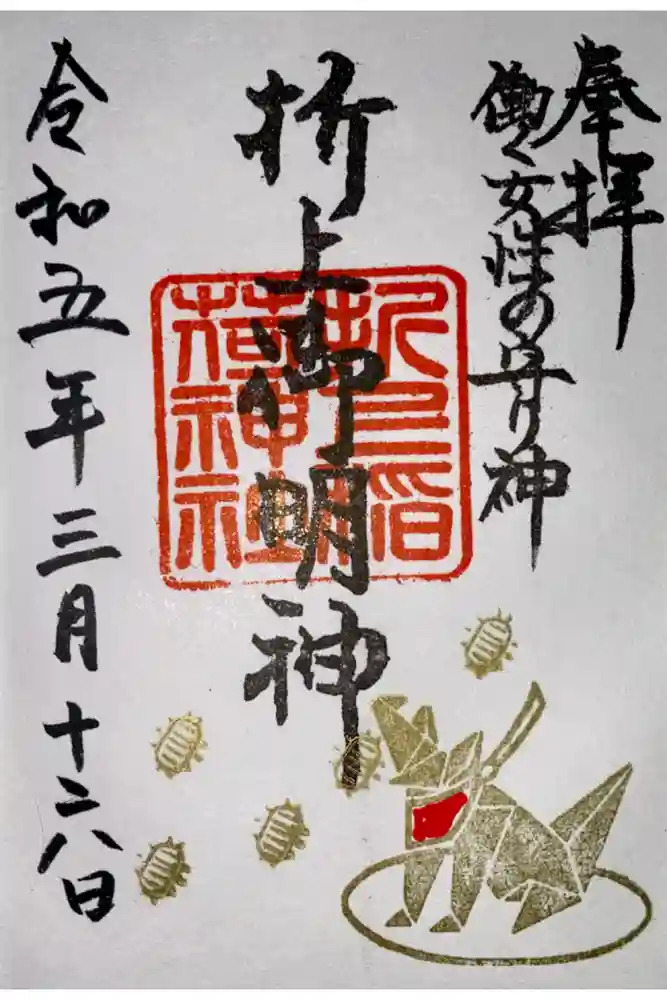 奉拝
働く女性の守り神
折上御明神
折上稲
荷神社
令和五年三月十二八日